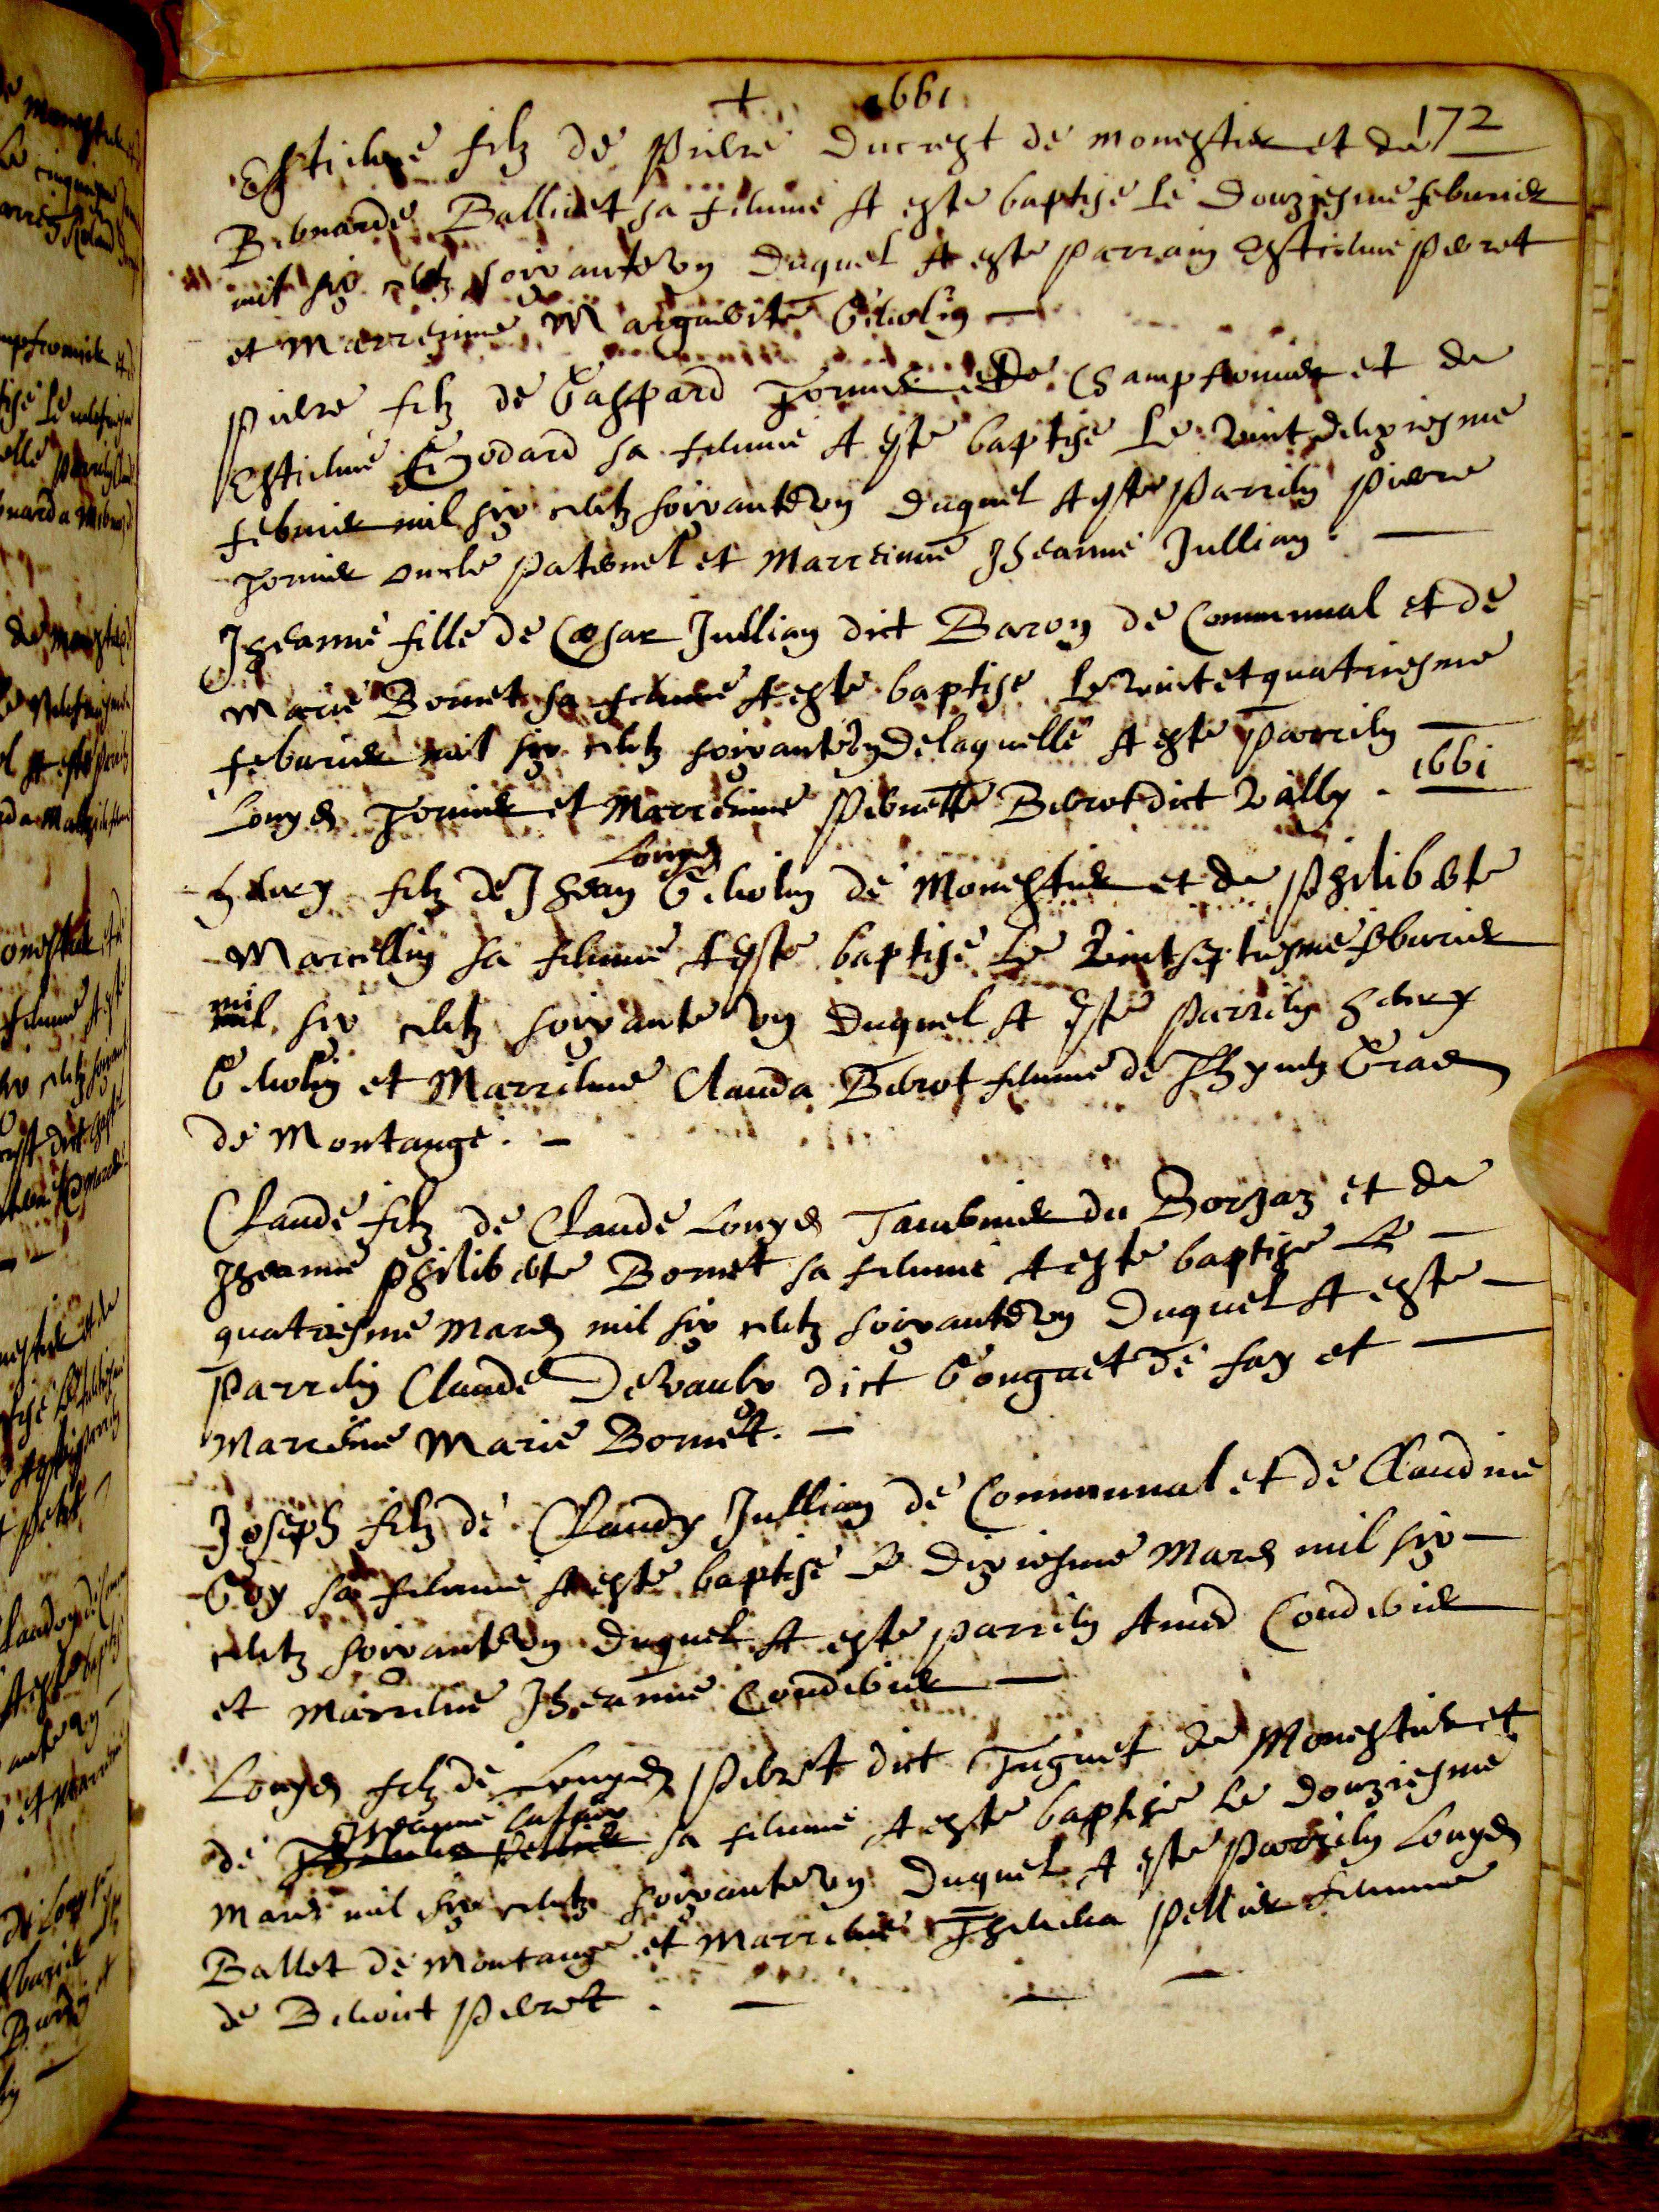 + 1661
172
Estienne filz de Pierre Ducrest de Monestier et de
Bernarde Ballivet sa femme A este baptise le Douziesme febvrier
mil six centz soixante vng Duquel A este parrain Estienne Perret
et Marreinne Margueritte Genolin
Pierre filz de Gaspard Tornier de Champfromier et de
Estienne Godard sa femme A este baptise le vint deuxiesme
febvrier mil six centz soixante vng Duquel A este Parrein Pierre
Tornier oncle paternel et Marreinne Jheanne Jullian.
Jheanne fille de Cæsar Jullian dict Baron de Communal et de
Marie Bornet sa femme A este baptise Le vint et quatriesme
febvrier mil six centz soixante vng De laquelle A este Parrein
Louys Tornier et Marreinne Pernette Berrot dict Vally. 1661
Henry filz de Jhean Louys Genolin de Monestier et de Philiberte
Marcellin sa femme A este baptise Le Vint septiesme febvrier
mil six centz soixante vng Duquel A este Parrein Henry
Genolin et Marreinne Clauda Berrot femme de Thyvent Gras
de Montange.
Claude filz de Claude Louys Tavernier du Borjaz et de
Jheanne Philiberte Bornet sa femme A este baptise Le
quatriesme Mars mil six centz soixante vng Duquel A este
Parrein Claude Devaulx dict Gouguet de fay et
Marreinne Marie Bornet.
Joseph filz de Claudy Jullian de Communal et de Claudine
Goy sa femme A este baptise Le Dixiesme Mars mil six
centz soixante vng Duquel A este parrein Amed Coudurier
et Marreine Jheanne Coudurier
Louys filz de Louys Perret dict Tuguet de Monestier et
de Jheanne sa femme A este baptise Le douziesme
Mars mil six centz soixante vng Duquel A este Parrein Louys
Ballet de Montange et Marreine Thevena Pellier femme
de Benoict Perret.